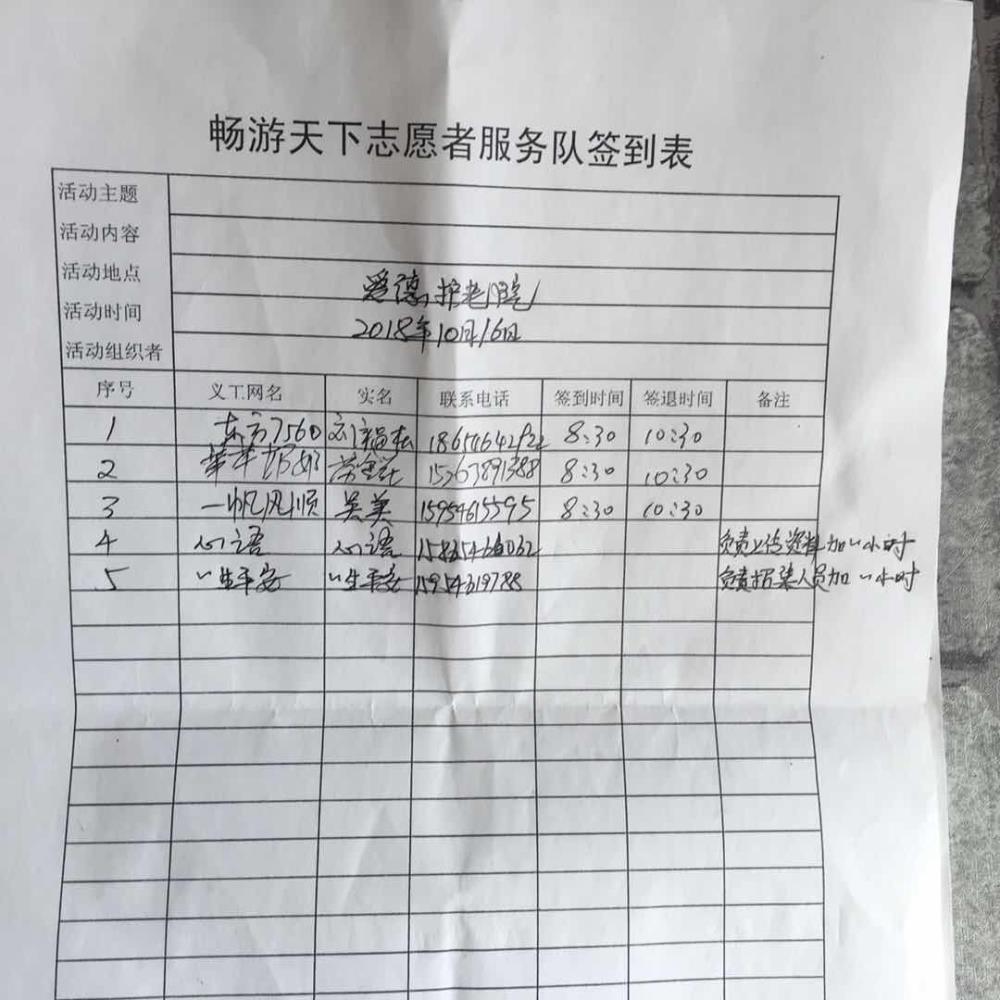 畅游天下志愿者服务队签到表
活动主题
活动内容
活动地点 爱德护老院
活动时间 2018年10月16日
活动组织者
序号 义工网名 实名 联系电话 签到时间 签退时间 备注
1 东方7560 8:30 10:30
2 8:30 10:30
3 一帆风顺 吴美 15954615595 8:30 10:30
4 心语 心语 负责上传资料加一小时
5 一生平安 一生平安 15954619788 负责招募人员加一小时